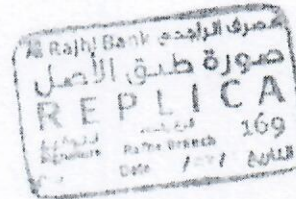 Al Rajhi Bank مصرف الراجحي
صورة طبق الأصل
REPLICA
التوقيع Signature Branch 169
Date / / التاريخ